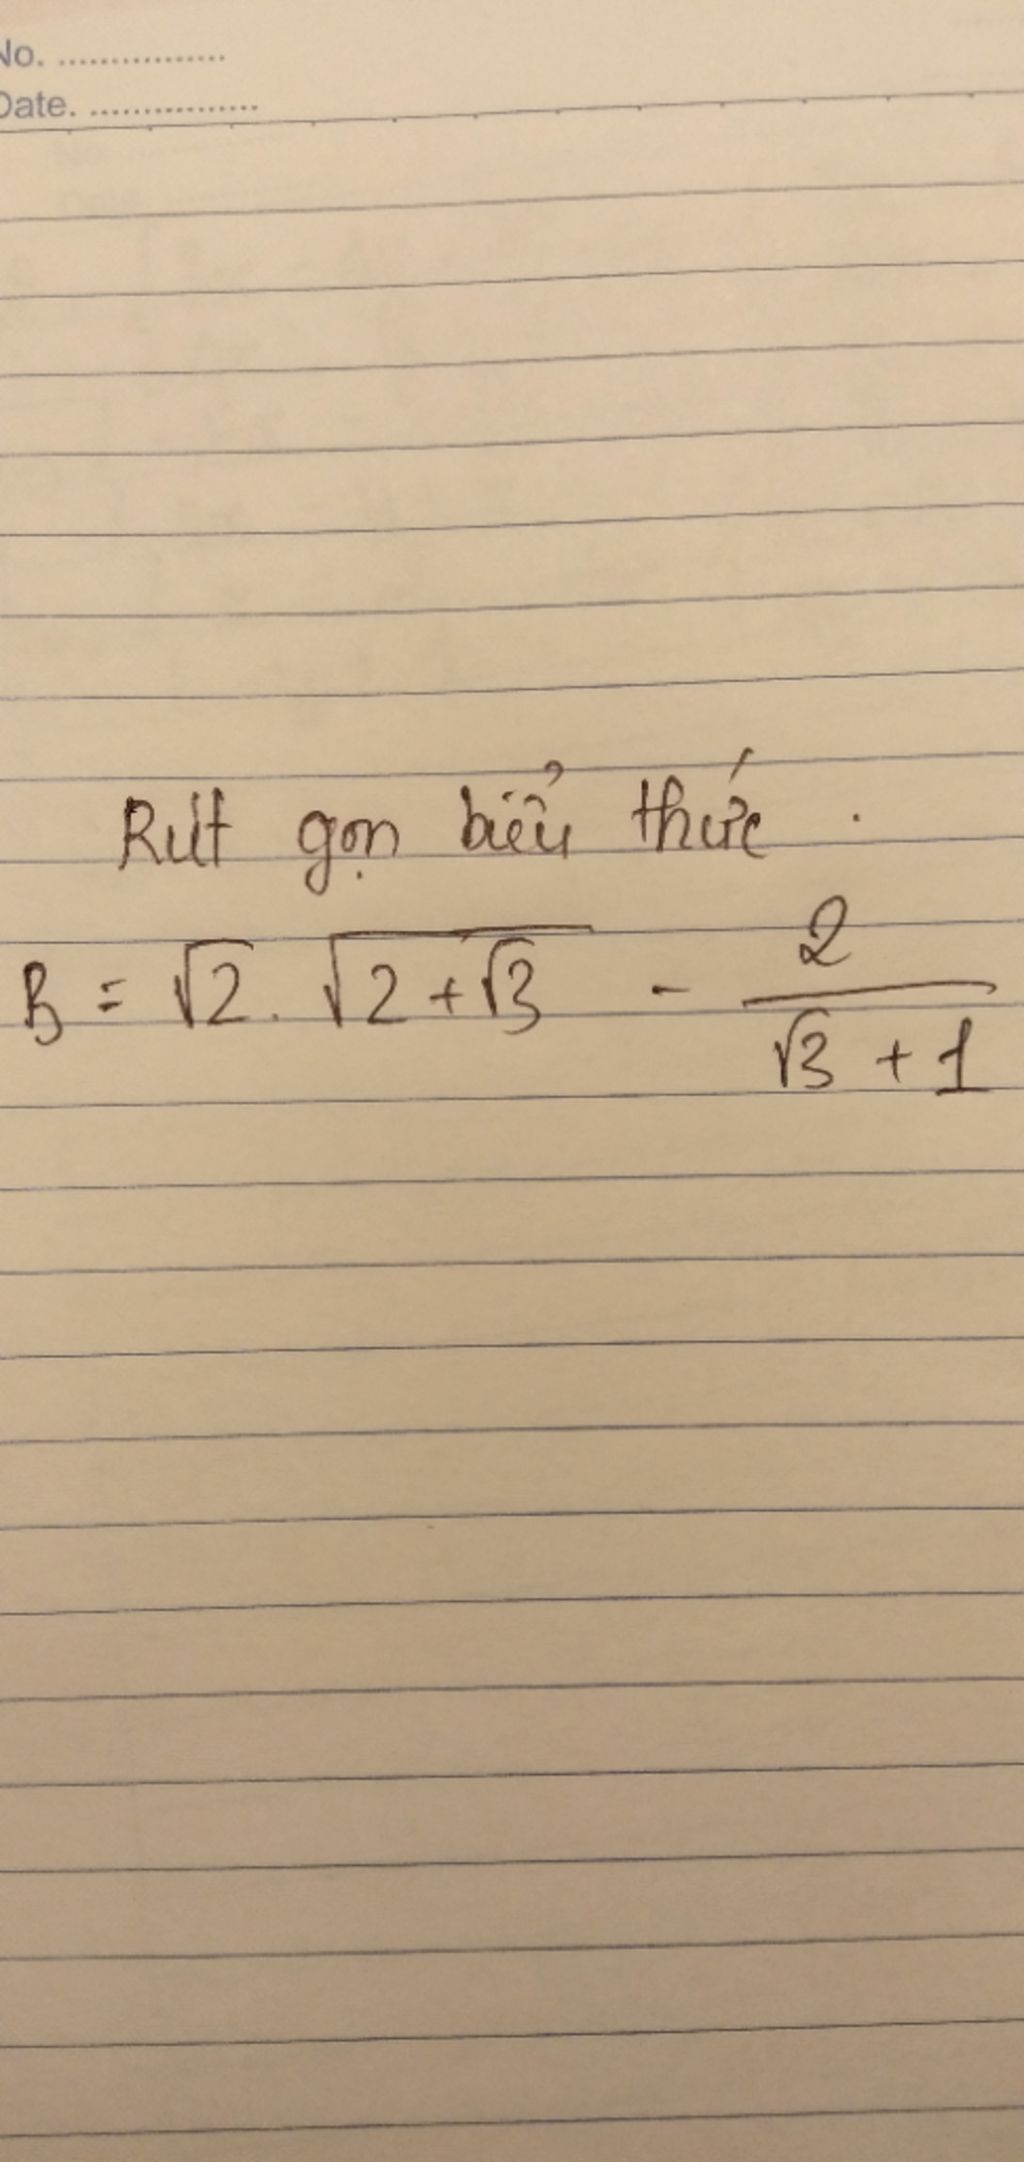 No. ................
Date. ................
Rút gọn biểu thức.
B = √2 . √(2 + √3) - 2/(√3 + 1)